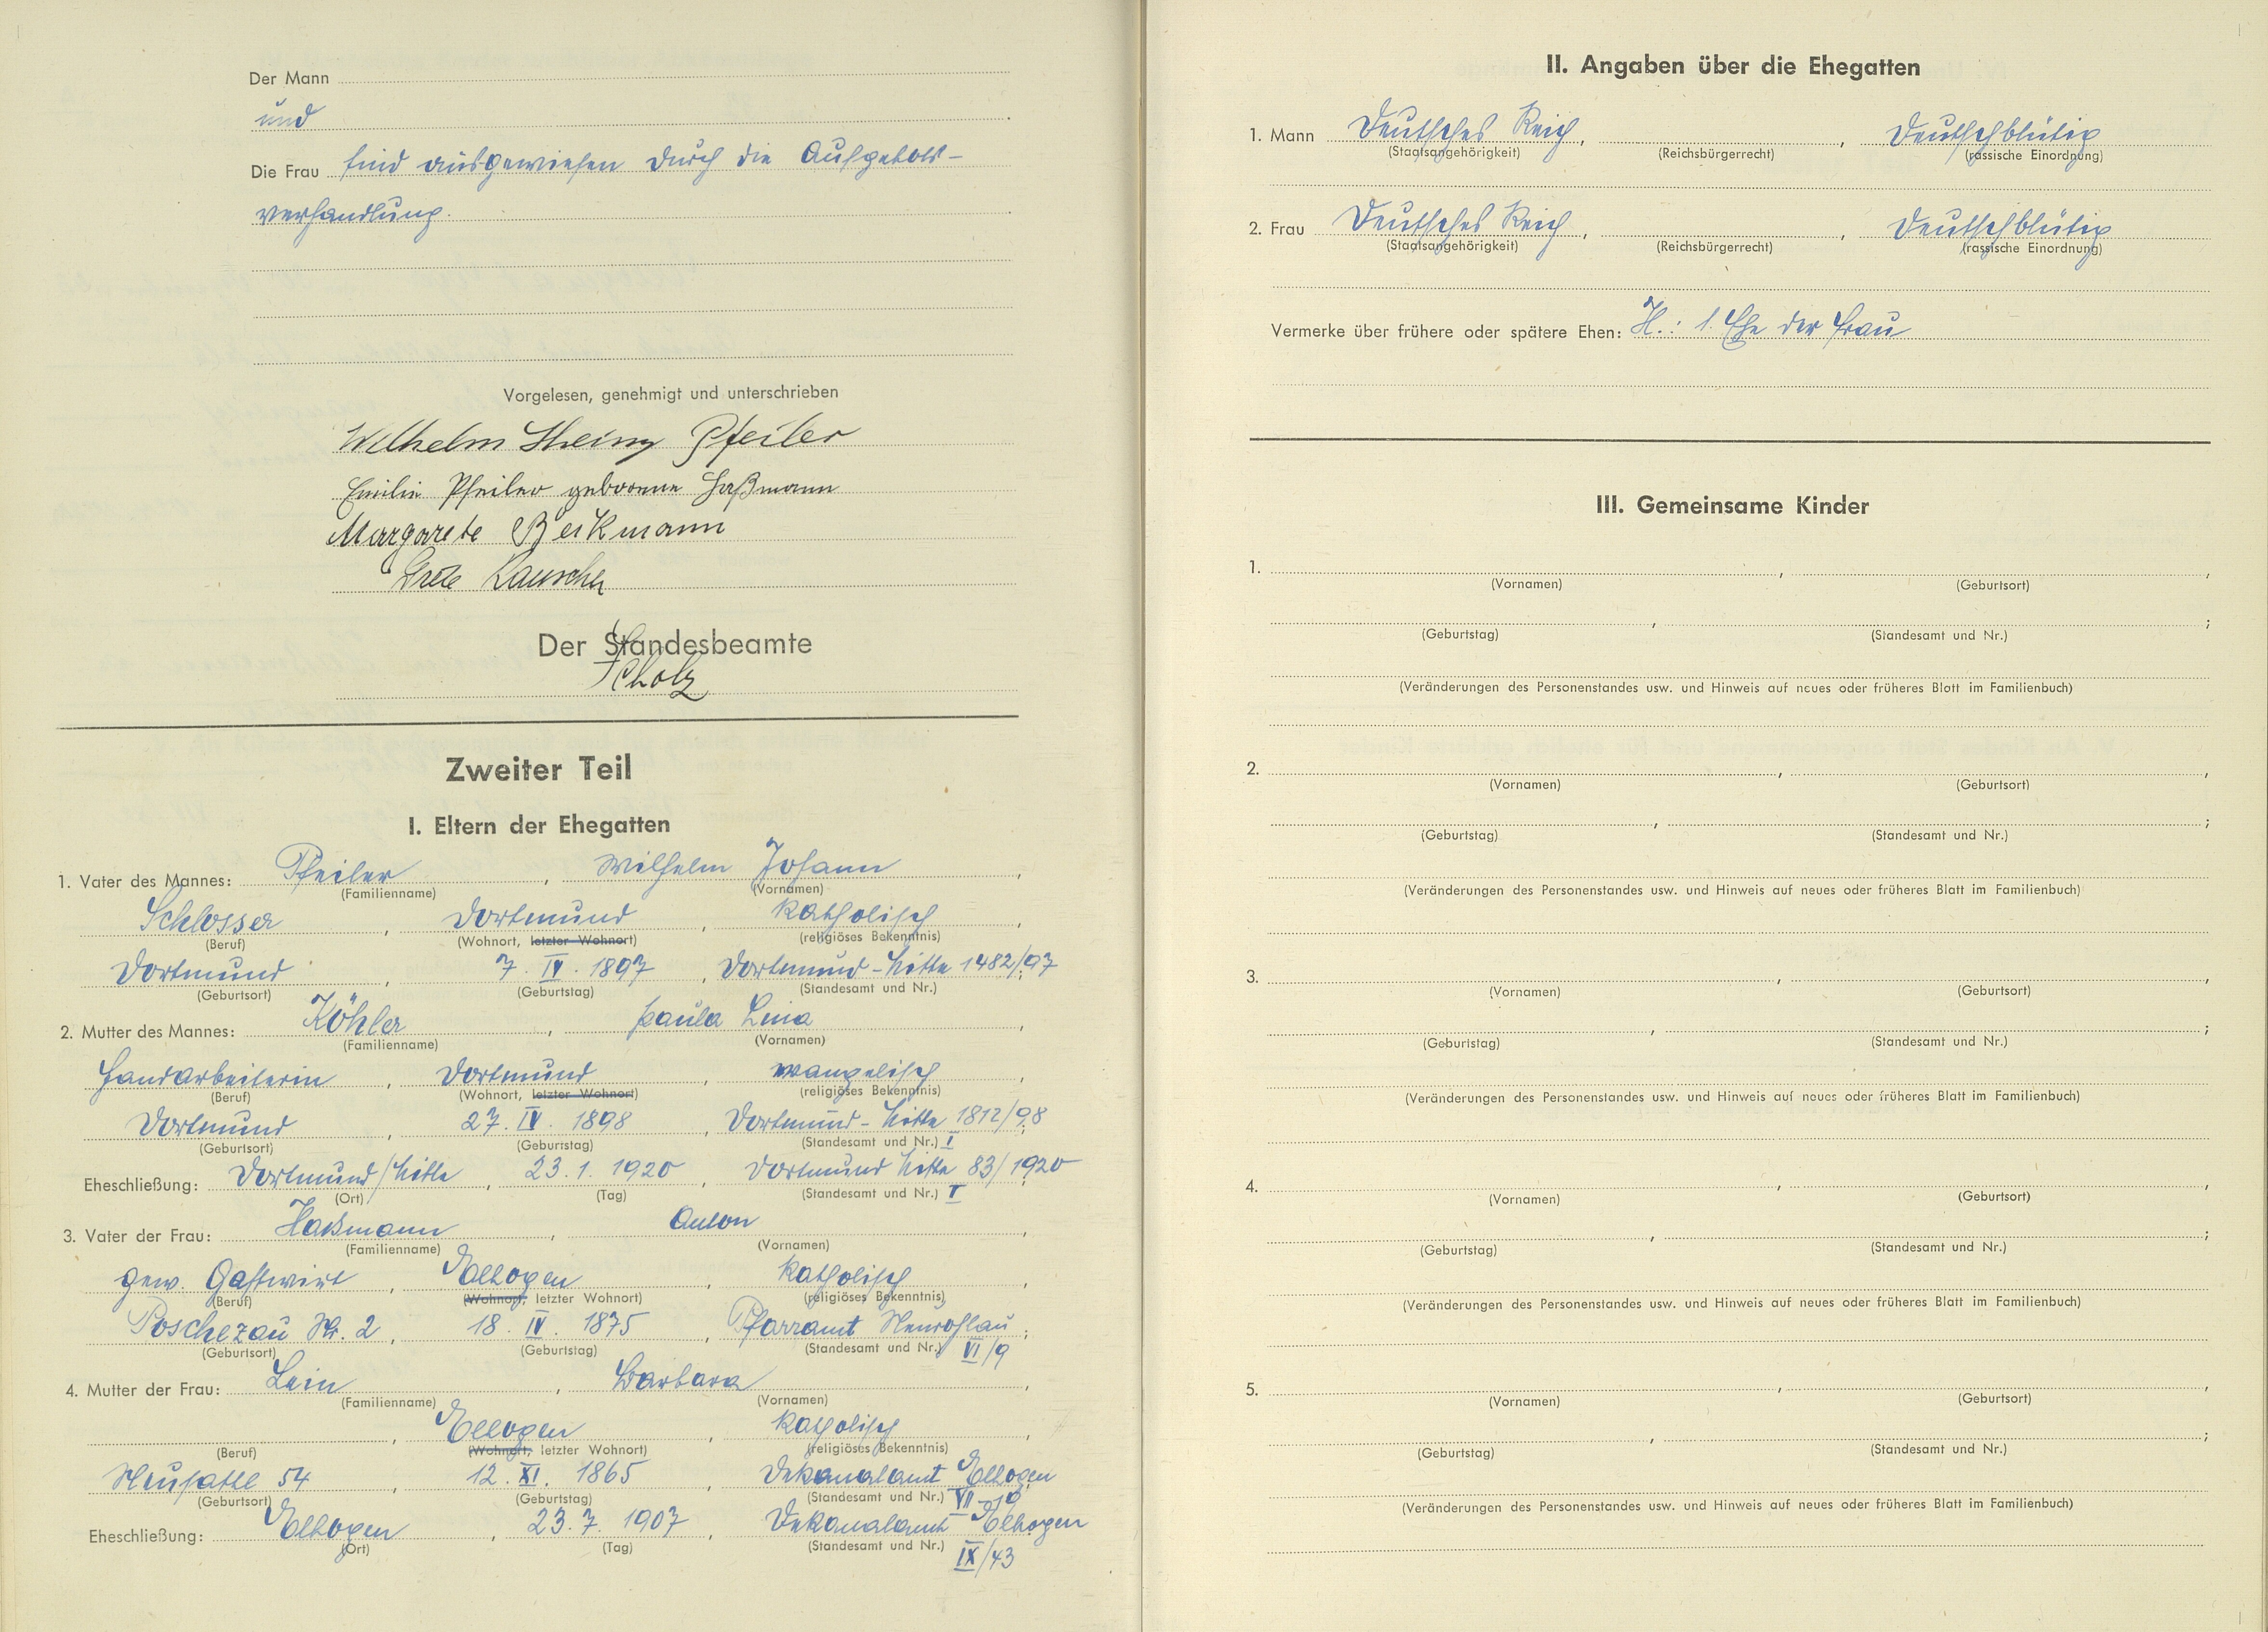 Der Mann
und
Die Frau sind ausgewiesen durch die Aufgebots-
verhandlung.
Vorgelesen, genehmigt und unterschrieben
Wilhelm Heinz Pfeiler
Emilie Pfeiler geborene Haßmann
Margarete Beikmann
Grete Lauscher
Der Standesbeamte
Scholz
Zweiter Teil
I. Eltern der Ehegatten
1. Vater des Mannes: Pfeiler, Wilhelm Johann,
(Familienname) (Vornamen)
Schlosser, Dortmund, katholisch,
(Beruf) (Wohnort, letzter Wohnort) (religiöses Bekenntnis)
Dortmund, 7. IV. 1897, Dortmund-Mitte 1482/97;
(Geburtsort) (Geburtstag) (Standesamt und Nr.)
2. Mutter des Mannes: Köhler, Paula Lina,
(Familienname) (Vornamen)
Handarbeiterin, Dortmund, evangelisch,
(Beruf) (Wohnort, letzter Wohnort) (religiöses Bekenntnis)
Dortmund, 27. IV. 1898, Dortmund-Mitte 1812/98;
(Geburtsort) (Geburtstag) (Standesamt und Nr.) I
Eheschließung: Dortmund/Mitte, 23. 1. 1920, Dortmund Mitte 83/1920
(Ort) (Tag) (Standesamt und Nr.) I
3. Vater der Frau: Haßmann, Anton,
(Familienname) (Vornamen)
gew. Gastwirt, Elbogen, katholisch,
(Beruf) (Wohnort, letzter Wohnort) (religiöses Bekenntnis)
Poschezau Nr. 2, 18. IV. 1875, Pfarramt Neurohlau;
(Geburtsort) (Geburtstag) (Standesamt und Nr.) VI/9
4. Mutter der Frau: Lein, Barbara,
(Familienname) (Vornamen)
, Elbogen, katholisch,
(Beruf) (Wohnort, letzter Wohnort) (religiöses Bekenntnis)
Neusattl 54, 12. XI. 1865, Dekanalamt Elbogen
(Geburtsort) (Geburtstag) (Standesamt und Nr.) VII
Eheschließung: Elbogen, 23. 7. 1907, Dekanalamt Elbogen
(Ort) (Tag) (Standesamt und Nr.) IX/43
II. Angaben über die Ehegatten
1. Mann Deutsches Reich, , Deutschblütig
(Staatsangehörigkeit) (Reichsbürgerrecht) (rassische Einordnung)
2. Frau Deutsches Reich, , Deutschblütig
(Staatsangehörigkeit) (Reichsbürgerrecht) (rassische Einordnung)
Vermerke über frühere oder spätere Ehen: H.: 1. Ehe der Frau
III. Gemeinsame Kinder
1. , ,
(Vornamen) (Geburtsort)
, ;
(Geburtstag) (Standesamt und Nr.)
(Veränderungen des Personenstandes usw. und Hinweis auf neues oder früheres Blatt im Familienbuch)
2. , ,
(Vornamen) (Geburtsort)
, ;
(Geburtstag) (Standesamt und Nr.)
(Veränderungen des Personenstandes usw. und Hinweis auf neues oder früheres Blatt im Familienbuch)
3. , ,
(Vornamen) (Geburtsort)
, ;
(Geburtstag) (Standesamt und Nr.)
(Veränderungen des Personenstandes usw. und Hinweis auf neues oder früheres Blatt im Familienbuch)
4. , ,
(Vornamen) (Geburtsort)
, ;
(Geburtstag) (Standesamt und Nr.)
(Veränderungen des Personenstandes usw. und Hinweis auf neues oder früheres Blatt im Familienbuch)
5. , ,
(Vornamen) (Geburtsort)
, ;
(Geburtstag) (Standesamt und Nr.)
(Veränderungen des Personenstandes usw. und Hinweis auf neues oder früheres Blatt im Familienbuch)